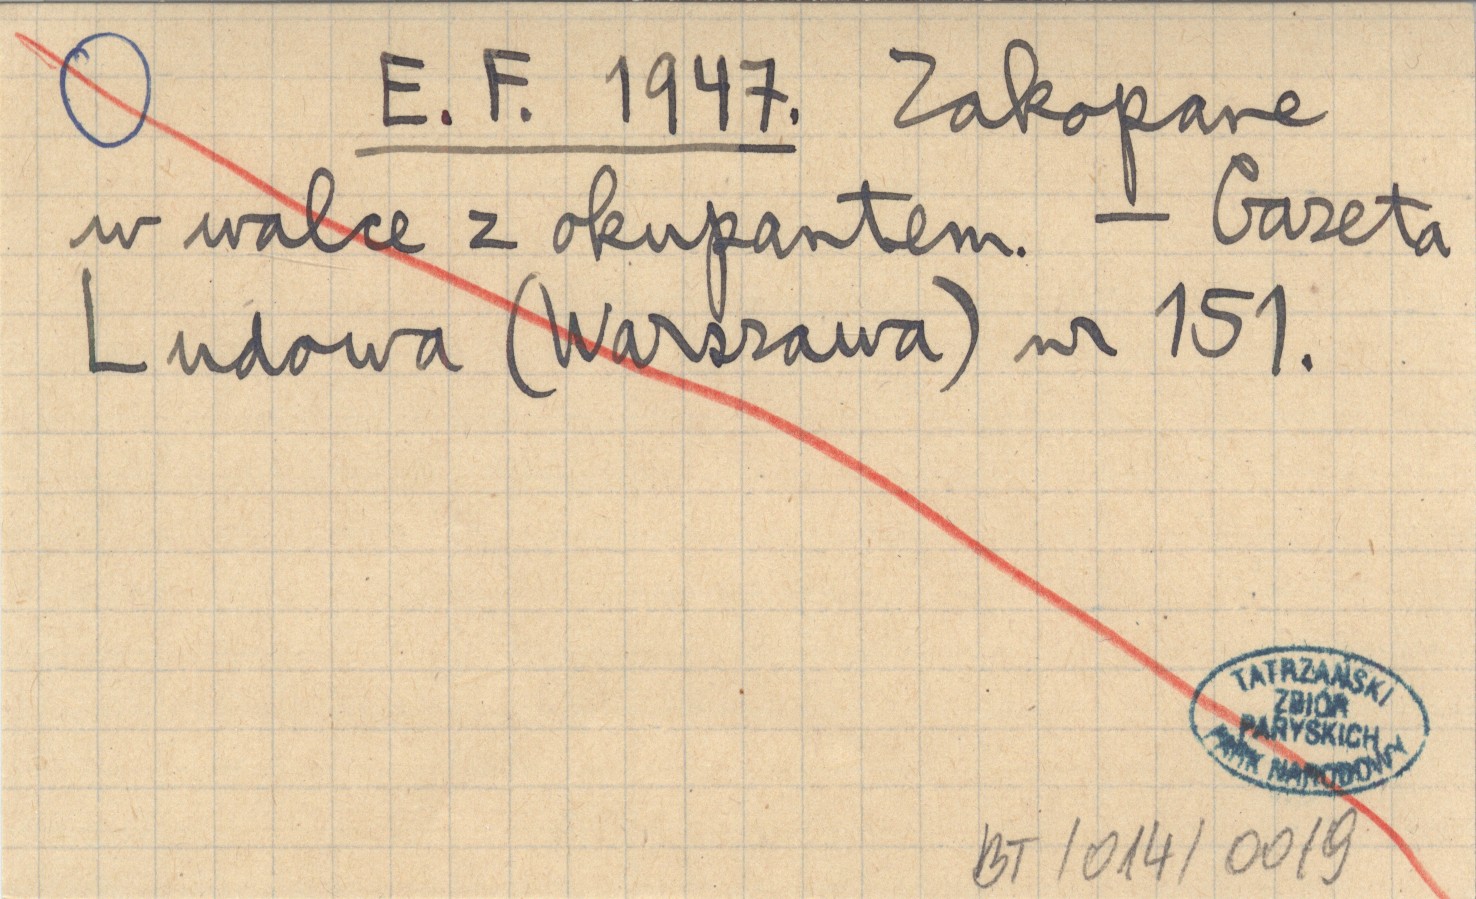 E. F. 1947. Zakopane
w walce z okupantem. — Gazeta
Ludowa (Warszawa) nr 151.
TATRZAŃSKI
ZBIÓR
PARYSKICH
PARK NARODOWY
BT/014/0019